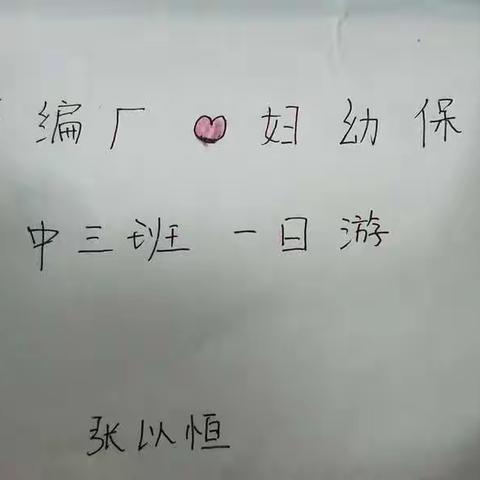 编厂 妇幼保
中三班 一日游
张以恒